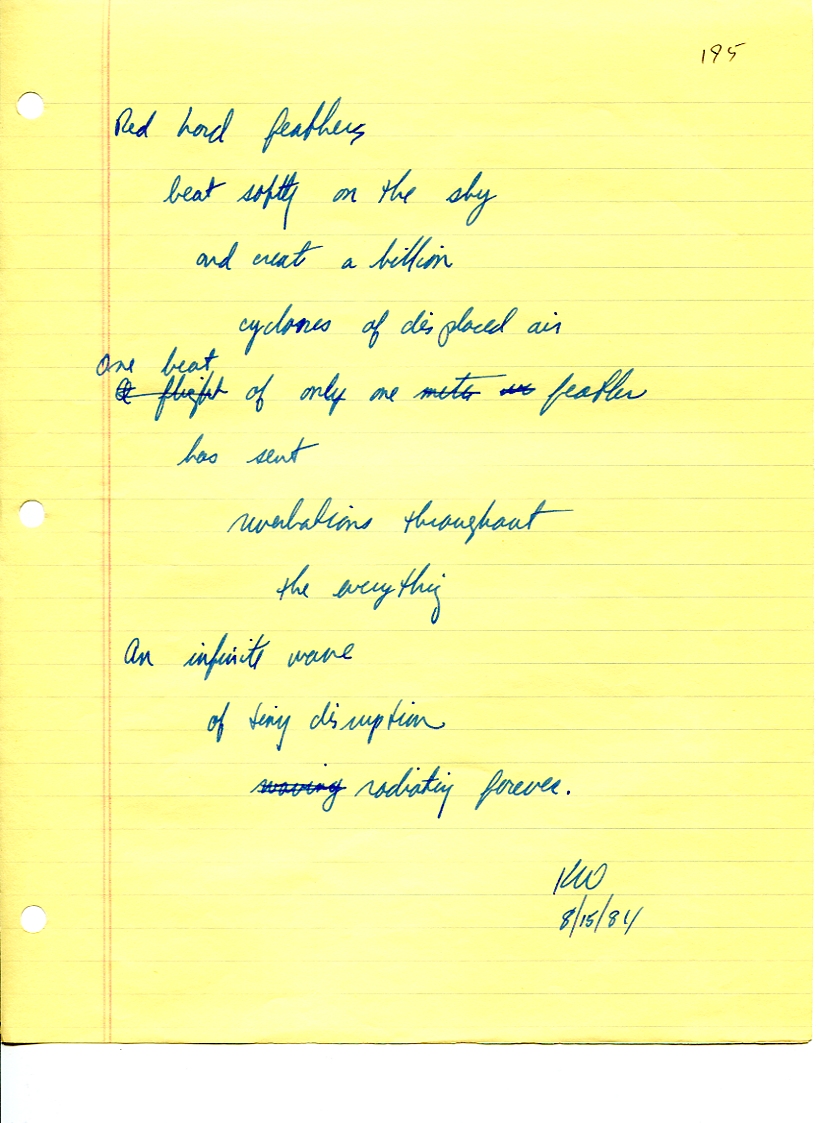 195
Red hord feathers
beat softly on the sky
and creat a billion
cyclones of displaced air
One beat
A flight of only one meter feather
has sent
reverbations throughout
the everything
An infinite wave
of tiny disruption
moving radiating forever.
KW
8/15/84